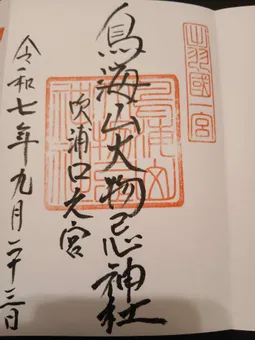 出羽國一宮
鳥海山大物忌神社
吹浦口之宮
令和七年九月二十三日